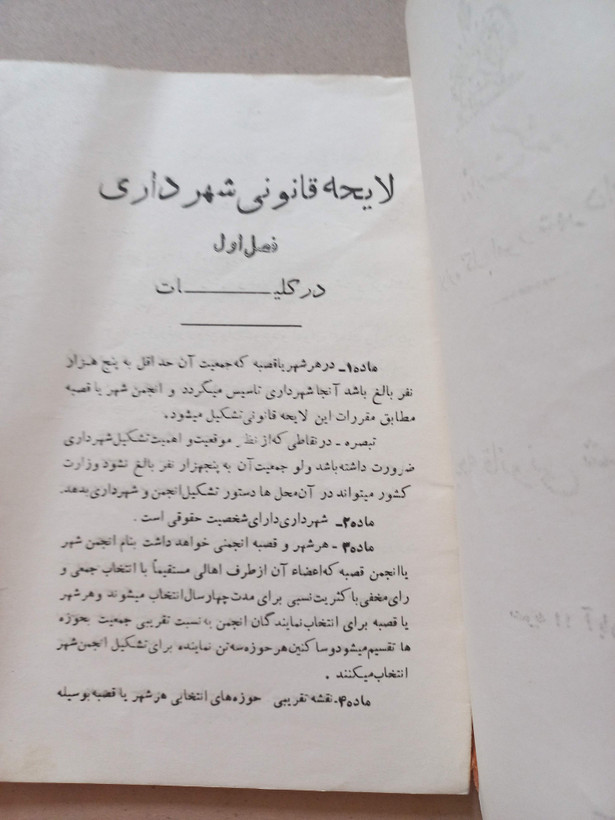 لایحه قانونی شهرداری
فصل اول
در کلیـــــــات
ماده۱ـ در هر شهر یا قصبه که جمعیت آن حداقل به پنج هزار
نفر بالغ باشد آنجا شهرداری تاسیس میگردد و انجمن شهر یا قصبه
مطابق مقررات این لایحه قانونی تشکیل میشود.
تبصره ـ در نقاطی که از نظر موقعیت و اهمیت تشکیل شهرداری
ضرورت داشته باشد ولو جمعیت آن به پنجهزار نفر بالغ نشود وزارت
کشور میتواند در آن محل ها دستور تشکیل انجمن و شهرداری بدهد.
ماده۲ـ شهرداری دارای شخصیت حقوقی است.
ماده۳ـ هر شهر و قصبه انجمنی خواهد داشت بنام انجمن شهر
یا انجمن قصبه که اعضاء آن از طرف اهالی مستقیماً با انتخاب جمعی و
رای مخفی با کثریت نسبی برای مدت چهار سال انتخاب میشوند و هر شهر
یا قصبه برای انتخاب نمایندگان انجمن به نسبت تقریبی جمعیت بحوزه
ها تقسیم میشود و ساکنین هر حوزه سه تن نماینده برای تشکیل انجمن شهر
انتخاب میکنند.
ماده۴ـ نقشه تقریبی حوزه های انتخابی هر شهر یا قصبه بوسیله